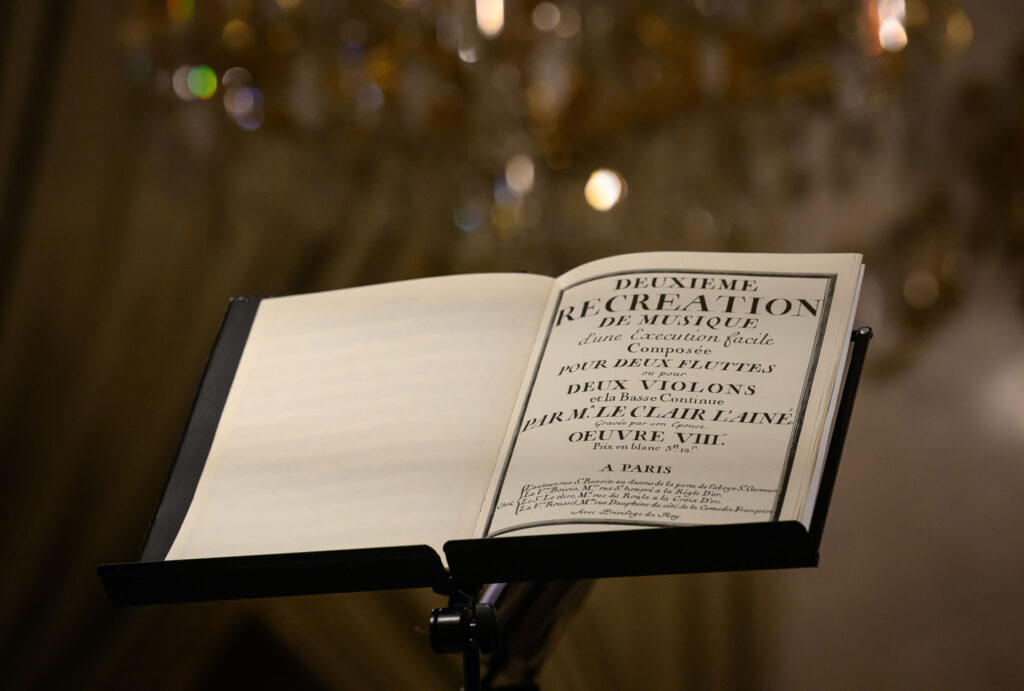 DEUXIEME
RECREATION
DE MUSIQUE
d'une Execution facile
Composée
POUR DEUX FLUTTES
ou pour
DEUX VIOLONS
et la Basse Continue
PAR Mr. LE CLAIR L'AINÉ
Gravée par son Epouse.
OEUVRE VIIIe.
Prix en blanc 3tt. 12s.
A PARIS
L'auteur, rue St. Benoite au dessus de la porte de l'abaye St. Germain
La Ve. Boivin, Mde. rue St. honoré a la Régle D'or.
Chez Le Sr. Le clerc, Md. rue du Roule a la Croix D'or.
La Ve. Roussel, Mde. rue Dauphine du côté de la Comedie Françoise
Avec Privilege du Roy.